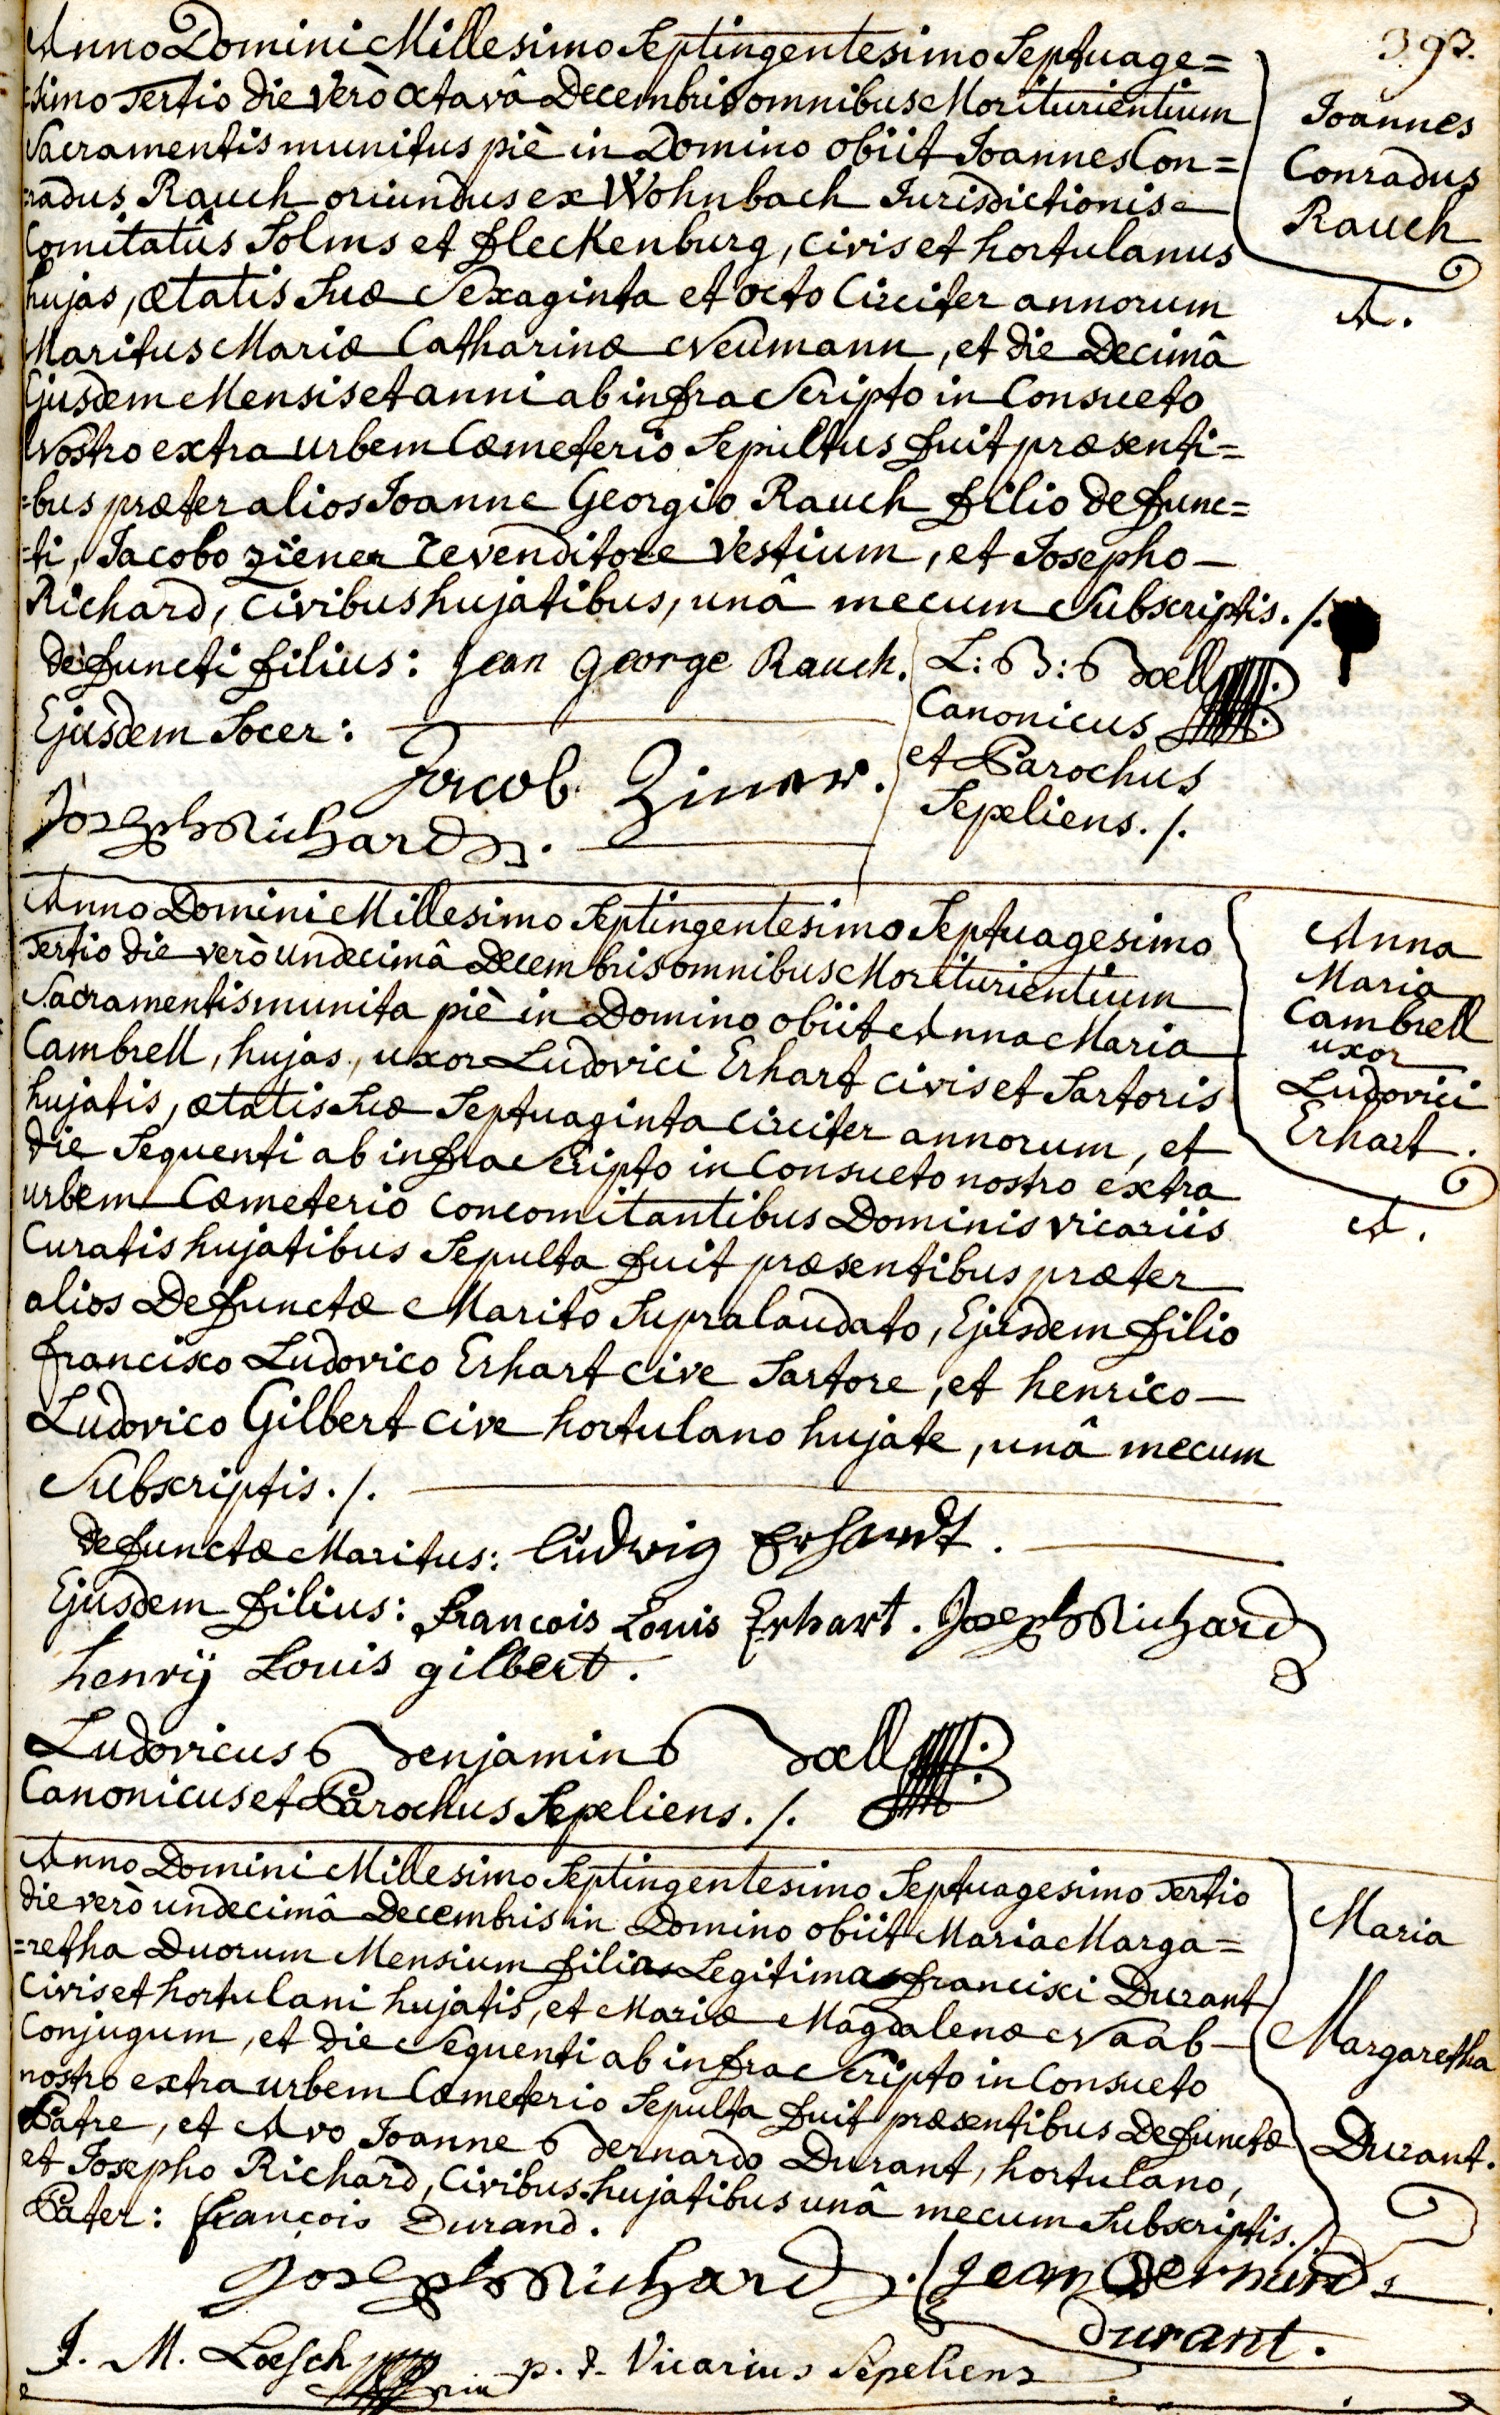 393.
Anno Domini Millesimo Septingentesimo Septuage=
=simo Tertio die verò octavâ Decembris omnibus Moriturientium
Sacramentis munitus piè in Domino obiit Joannes Con=
=radus Rauch oriundus ex Wohnbach Jurisdictionis
Comitatûs Solms et fleckenburg, civis et hortulanus
hujas, ætatis suæ Sexaginta et octo Circiter annorum
Maritus Mariæ Catharinæ Neumann, et die Decimâ
Ejusdem Mensis et anni ab infra Scripto in Consueto
Nostro extra urbem Cœmeterio Sepultus fuit præsenti=
=bus præter alios Joanne Georgio Rauch filio defunc=
=ti, Jacobo ziener revenditore vestium, et Josepho –
Richard, Civibus hujatibus, unâ mecum Subscriptis. /.
Joannes
Conradus
Rauch
A.
defuncti filius: Jean george Rauch.
Ejusdem Socer:
Jacob Ziner.
Joseph Richard.
L: B: Boell
Canonicus
et Parochus
Sepeliens. /.
Anno Domini Millesimo Septingentesimo Septuagesimo
Tertio die verò undecimâ Decembris omnibus Moriturientium
Sacramentis munita piè in Domino obiit Anna Maria
Cambrell, hujas, uxor Ludovici Erhart civis et Sartoris
hujatis, ætatis suæ Septuaginta circiter annorum, et
die Sequenti ab infra Scripto in Consueto nostro extra
urbem Cœmeterio concomitantibus Dominis vicariis
Curatis hujatibus Sepulta fuit præsentibus præter
alios Defunctæ Marito Supralaudato, Ejusdem filio
francisco Ludovico Erhart cive Sartore, et henrico –
Ludovico Gilbert cive hortulano hujate, unâ mecum
Subscriptis. /.
Anna
Maria
Cambrell
uxor
Ludovici
Erhart.
A.
defunctæ Maritus: Ludwig Erhardt.
Ejusdem filius: francois Louis Erhart. Joseph Richard
henrÿ Louis gilbert.
Ludovicus Benjamin Boell
Canonicus et Parochus Sepeliens. /.
Anno Domini Millesimo Septingentesimo Septuagesimo Tertio
die verò undecimâ Decembris in Domino obiit Maria Marga=
=retha Duorum Mensium filia Legitima francisci Durant
Civis et hortulani hujatis, et Mariæ Magdalenæ Naab –
Conjugum, et die Sequenti ab infra Scripto in Consueto
nostro extra urbem Cœmeterio Sepulta fuit præsentibus Defunctæ
Patre, et Avo Joanne Bernardo Durant, hortulano,
et Josepho Richard, Civibus hujatibus unâ mecum Subscriptis. /.
Maria
Margaretha
Durant.
Pater: françois Durand.
Joseph Richard. Jean Bernard
durant.
J. M. Loesch p. t. Vicarius Sepeliens